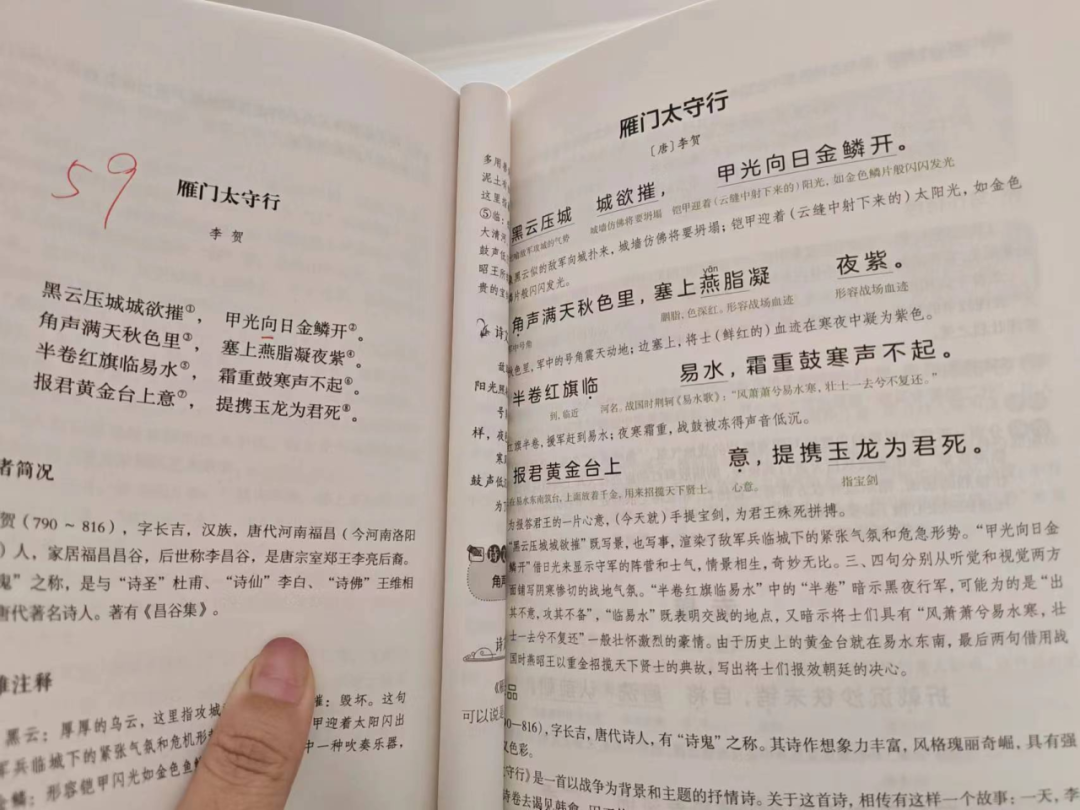 59
雁门太守行
李贺
黑云压城城欲摧①， 甲光向日金鳞开②。
角声满天秋色里③， 塞上燕脂凝夜紫④。
半卷红旗临易水⑤， 霜重鼓寒声不起⑥。
报君黄金台上意⑦， 提携玉龙为君死⑧。
者简况
贺（790～816），字长吉，汉族，唐代河南福昌（今河南洛阳
）人，家居福昌昌谷，后世称李昌谷，是唐宗室郑王李亮后裔。
鬼”之称，是与“诗圣”杜甫、“诗仙”李白、“诗佛”王维相
唐代著名诗人。著有《昌谷集》。
难注释
黑云：厚厚的乌云，这里指攻城
摧：毁坏。这句
军兵临城下的紧张气氛和危机形
甲迎着太阳闪出
金鳞：形容铠甲闪光如金色鱼
中一种吹奏乐器，
多用
泥土
这里指
⑤临：
大清河
鼓声低
昭王所
贵的宝
诗
阳光照
样，夜
寒
鼓声低
角
可以说
雁门太守行
［唐］李贺
黑云压城 城欲摧， 甲光向日金鳞开。
敌军攻城的气势 城墙仿佛将要坍塌 铠甲迎着（云缝中射下来的）阳光，如金色鳞片般闪闪发光
黑云似的敌军向城扑来，城墙仿佛将要坍塌；铠甲迎着（云缝中射下来的）太阳光，如金色
片般闪闪发光。
yān
角声满天秋色里，塞上燕脂凝 夜紫。
胭脂，色深红。形容战场血迹 形容战场血迹
色里，军中的号角震天动地；边塞上，将士（鲜红的）血迹在寒夜中凝为紫色。
半卷红旗临 易水，霜重鼓寒声不起。
到，临近 河名，战国时荆轲《易水歌》：“风萧萧兮易水寒，壮士一去兮不复还。”
红旗半卷，援军赶到易水；夜寒霜重，战鼓被冻得声音低沉。
报君黄金台上 意，提携玉龙为君死。
在易水东南筑台，上面放着千金，用来招揽天下贤士。 心意。 指宝剑
为报答君王的一片心意，（今天就）手提宝剑，为君王殊死拼搏。
“黑云压城城欲摧”既写景，也写事，渲染了敌军兵临城下的紧张气氛和危急形势。“甲光向日金
鳞开”借日光来显示守军的阵营和士气，情景相生，奇妙无比。三、四句分别从听觉和视觉两方
面铺写阴寒惨切的战地气氛。“半卷红旗临易水”中的“半卷”暗示黑夜行军，可能为的是“出
其不意，攻其不备”，“临易水”既表明交战的地点，又暗示将士们具有“风萧萧兮易水寒，壮
士一去兮不复还”一般壮怀激烈的豪情。由于历史上的黄金台就在易水东南，最后两句借用战
国时燕昭王以重金招揽天下贤士的典故，写出将士们报效朝廷的决心。
品
90—816），字长吉，唐代诗人，有“诗鬼”之称。其诗作想象力丰富，风格瑰丽奇崛，具有强
又色彩。
守行》是一首以战争为背景和主题的抒情诗。关于这首诗，相传有这样一个故事：一天，李